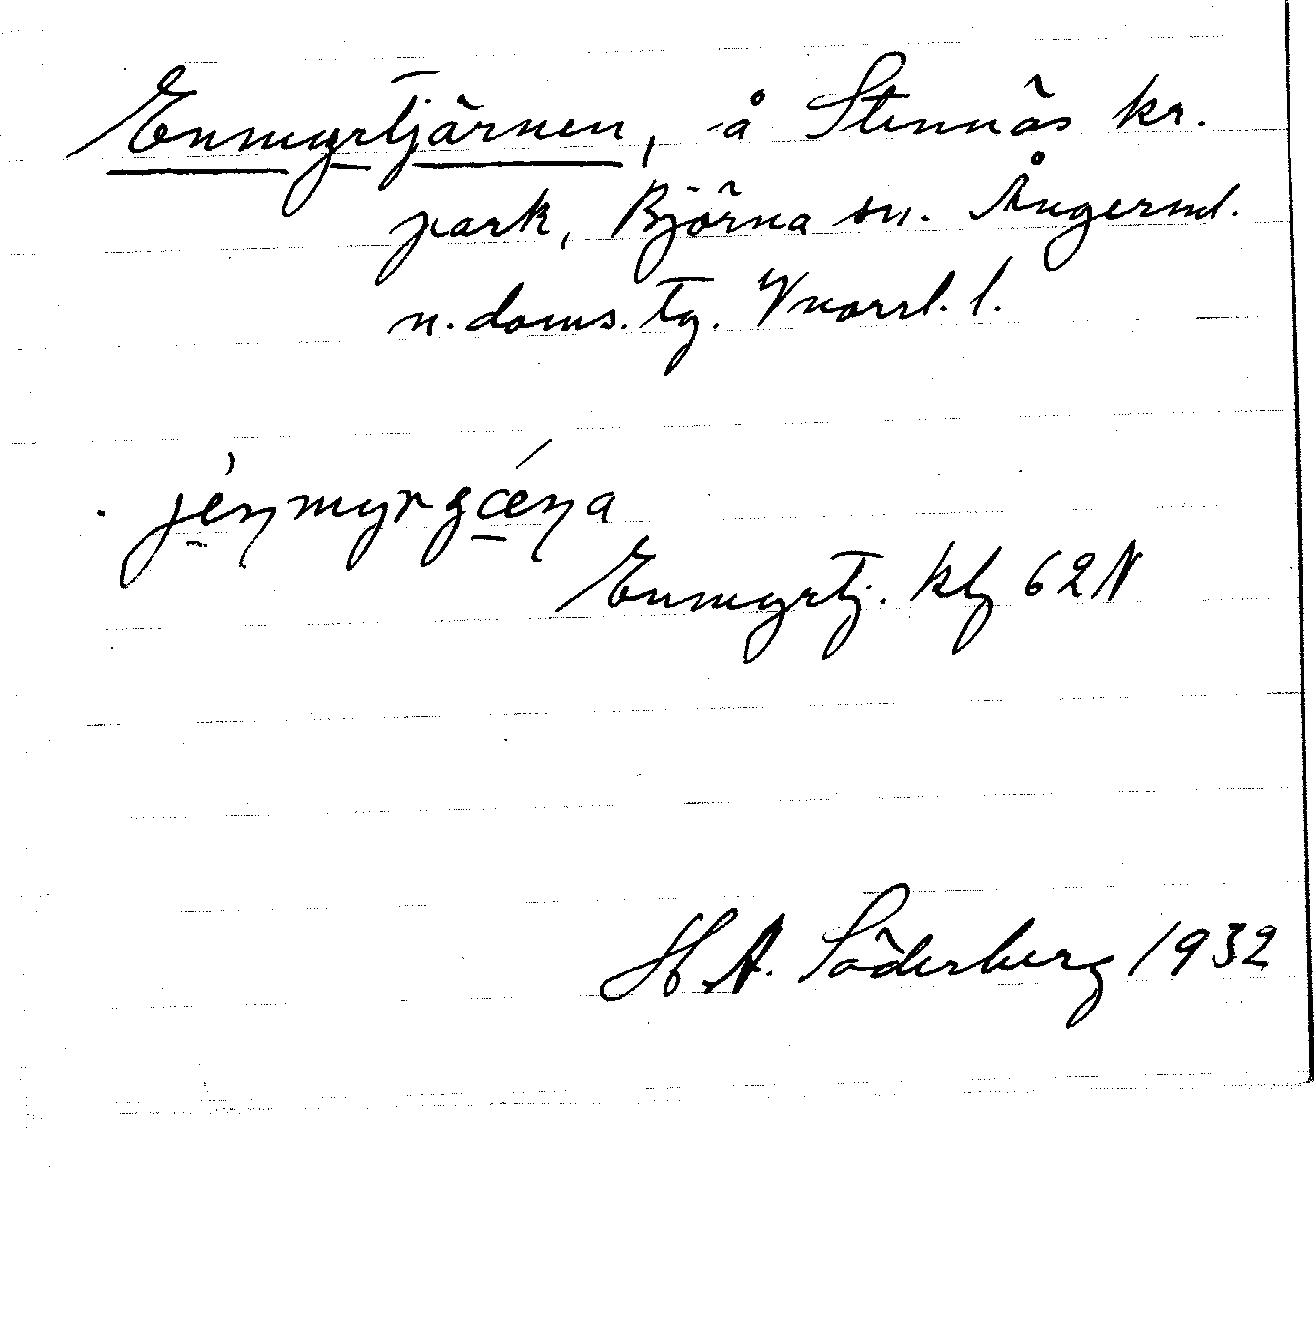 Enmyrtjärnen, å Stennäs kr.
park, Björna sn. Ångerml.
n. doms. tg. Vnorrl. l.
Enmyrtj. kbl 62 N
H A. Söderberg 1932